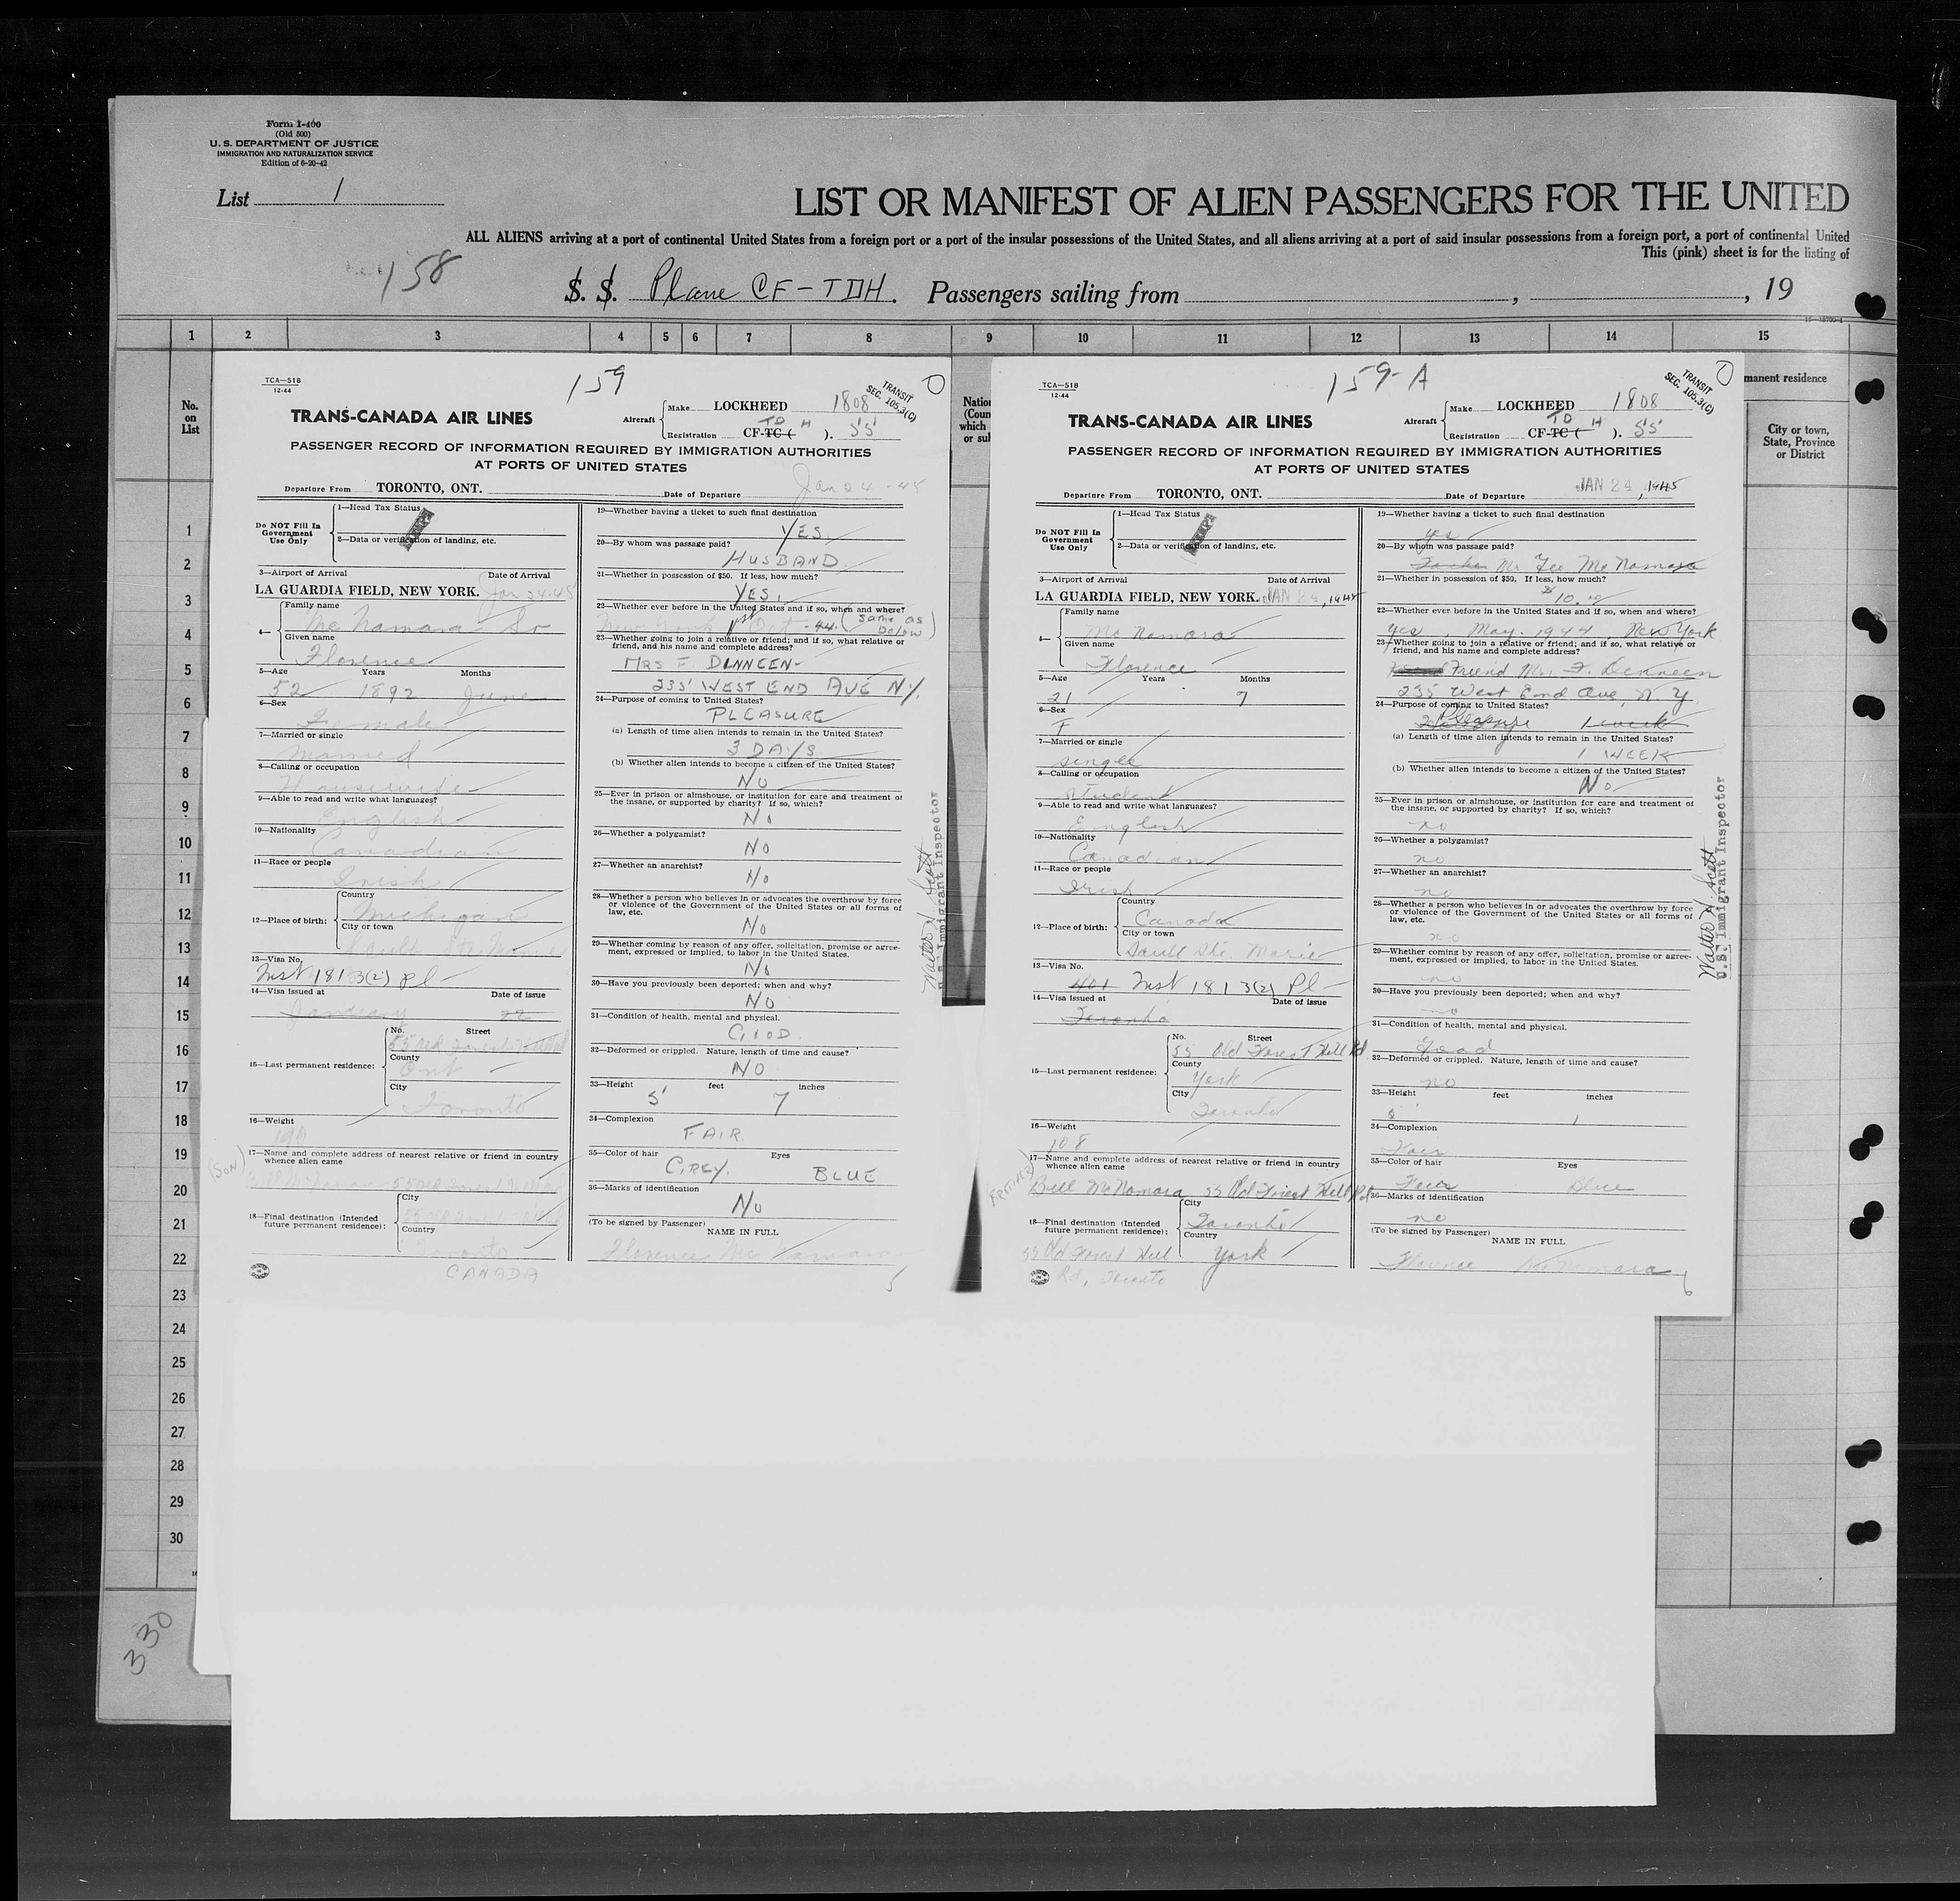 Form I-400
(Old 500)
U. S. DEPARTMENT OF JUSTICE
IMMIGRATION AND NATURALIZATION SERVICE
Edition of 6-20-42
List 1
LIST OR MANIFEST OF ALIEN PASSENGERS FOR THE UNITED
ALL ALIENS arriving at a port of continental United States from a foreign port or a port of the insular possessions of the United States, and all aliens arriving at a port of said insular possessions from a foreign port, a port of continental United
This (pink) sheet is for the listing of
158
S. S. Plane CF-TDH. Passengers sailing from , , 19
1 2 3 4 5 6 7 8 9 10 11 12 13 14 15
No.
on
List
1
2
3
4
5
6
7
8
9
10
11
12
13
14
15
16
17
18
19
20
21
22
23
24
25
26
27
28
29
30
330
TCA—518
12-44
159
TRANSIT
SEC. 105.3(C)
TRANS-CANADA AIR LINES
Aircraft
Make LOCKHEED 1808
Registration CF-TC ( ). TD H 55
PASSENGER RECORD OF INFORMATION REQUIRED BY IMMIGRATION AUTHORITIES
AT PORTS OF UNITED STATES
Departure From TORONTO, ONT. Date of Departure Jan 24-45
Do NOT Fill In
Government
Use Only
1—Head Tax Status
2—Data or verification of landing, etc.
3—Airport of Arrival Date of Arrival
LA GUARDIA FIELD, NEW YORK. Jan 24-45
4— Family name
Mc Namara Sr
Given name
Florence
5—Age Years Months
52 1892 June
6—Sex
Female
7—Married or single
Married
8—Calling or occupation
Housewife
9—Able to read and write what languages?
English
10—Nationality
Canadian
11—Race or people
Irish
12—Place of birth:
Country
Michigan
City or town
Sault Ste Marie
13—Visa No.
Inst 181 3(2) Pl
14—Visa issued at Date of issue
January 22
15—Last permanent residence:
No. Street
55 Old Forest Hill Rd
County
Ont
City
Toronto
16—Weight
190
17—Name and complete address of nearest relative or friend in country
whence alien came
(Son)
Bill McNamara 55 Old Forest Hill Rd
18—Final destination (Intended
future permanent residence):
City
55 Old Forest Hill Rd
Country
Toronto
CANADA
19—Whether having a ticket to such final destination
YES
20—By whom was passage paid?
HUSBAND
21—Whether in possession of $50. If less, how much?
YES.
22—Whether ever before in the United States and if so, when and where?
New York 1st Oct - 44. (same as below)
23—Whether going to join a relative or friend; and if so, what relative or
friend, and his name and complete address?
MRS F DINNEEN-
235 WEST END AVE NY.
24—Purpose of coming to United States?
PLEASURE
(a) Length of time alien intends to remain in the United States?
3 DAYS
(b) Whether alien intends to become a citizen of the United States?
NO
25—Ever in prison or almshouse, or institution for care and treatment of
the insane, or supported by charity? If so, which?
NO
26—Whether a polygamist?
NO
27—Whether an anarchist?
NO
28—Whether a person who believes in or advocates the overthrow by force
or violence of the Government of the United States or all forms of
law, etc.
NO
29—Whether coming by reason of any offer, solicitation, promise or agree-
ment, expressed or implied, to labor in the United States.
NO
30—Have you previously been deported; when and why?
NO
31—Condition of health, mental and physical.
GOOD
32—Deformed or crippled. Nature, length of time and cause?
NO
33—Height feet inches
5' 7
34—Complexion
FAIR
35—Color of hair Eyes
GREY. BLUE
36—Marks of identification
NO
(To be signed by Passenger) NAME IN FULL
Florence Mc Namara
5
Walter H. Scott
U.S. Immigrant Inspector
Nation
(Coun
which
or sul
TCA—518
12-44
159-A
TRANSIT
SEC. 105.3(C)
TRANS-CANADA AIR LINES
Aircraft
Make LOCKHEED 1808
Registration CF-TC ( ). TD H 55
PASSENGER RECORD OF INFORMATION REQUIRED BY IMMIGRATION AUTHORITIES
AT PORTS OF UNITED STATES
Departure From TORONTO, ONT. Date of Departure JAN 24, 1945
Do NOT Fill In
Government
Use Only
1—Head Tax Status
2—Data or verification of landing, etc.
3—Airport of Arrival Date of Arrival
LA GUARDIA FIELD, NEW YORK. JAN 24, 1945
4— Family name
Mc Namara
Given name
Florence
5—Age Years Months
21 7
6—Sex
F
7—Married or single
single
8—Calling or occupation
student
9—Able to read and write what languages?
English
10—Nationality
Canadian
11—Race or people
Irish
12—Place of birth:
Country
Canada
City or town
Sault Ste. Marie
13—Visa No.
401 Inst 181 3(2) Pl
14—Visa issued at Date of issue
Toronto
15—Last permanent residence:
No. Street
55 Old Forest Hill Rd
County
York
City
Toronto
16—Weight
108
17—Name and complete address of nearest relative or friend in country
whence alien came
(BROTHER)
Bill McNamara 55 Old Forest Hill Rd
18—Final destination (Intended
future permanent residence):
City
Toronto
Country
York
55 Old Forest Hill
Rd, Toronto
19—Whether having a ticket to such final destination
yes
20—By whom was passage paid?
Father Mr. Geo McNamara
21—Whether in possession of $50. If less, how much?
$10.00
22—Whether ever before in the United States and if so, when and where?
yes, May. 1944, New York
23—Whether going to join a relative or friend; and if so, what relative or
friend, and his name and complete address?
Friend Mrs. F. Denneen
235 West End Ave, N.Y.
24—Purpose of coming to United States?
Pleasure 1 week
(a) Length of time alien intends to remain in the United States?
1 WEEK
(b) Whether alien intends to become a citizen of the United States?
No
25—Ever in prison or almshouse, or institution for care and treatment of
the insane, or supported by charity? If so, which?
no
26—Whether a polygamist?
no
27—Whether an anarchist?
no
28—Whether a person who believes in or advocates the overthrow by force
or violence of the Government of the United States or all forms of
law, etc.
no
29—Whether coming by reason of any offer, solicitation, promise or agree-
ment, expressed or implied, to labor in the United States.
no
30—Have you previously been deported; when and why?
no
31—Condition of health, mental and physical.
Good
32—Deformed or crippled. Nature, length of time and cause?
no
33—Height feet inches
5 1
34—Complexion
Fair
35—Color of hair Eyes
Fair Blue
36—Marks of identification
no
(To be signed by Passenger) NAME IN FULL
Florence McNamara
6
Walter H. Scott
U.S. Immigrant Inspector
manent residence
City or town,
State, Province
or District